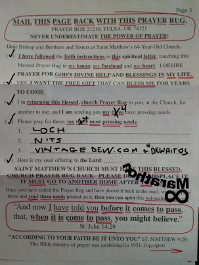 Page 3
MAIL THIS PAGE BACK WITH THIS PRAYER RUG.
PRAYER BOX 21210, TULSA, OK 74121
NEVER UNDERESTIMATE THE POWER OF PRAYER!
Dear Bishop and Brothers and Sisters at Saint Matthew's 64-Year-Old Church,
I have followed the faith instructions in this spiritual letter, touching this
blessed Prayer Rug to my knees or forehead and my heart. I DESIRE
PRAYER FOR GOD'S DIVINE HELP AND BLESSINGS IN MY LIFE.
YES, I WANT THE FREE GIFT THAT CAN BLESS ME FOR YEARS
TO COME.
I'm returning this blessed, church Prayer Rug to you, at the Church, for
another to use, and I am sending you my most pressing needs.
Please pray for these, my most pressing needs:
1. LOCH
2. NITS
3. VINTAGE DEW.COM
Here is my seed offering to the Lord:
SAINT MATTHEW'S CHURCH MUST HAVE THIS BLESSED,
CHURCH PRAYER RUG BACK. PLEASE
IT MUST GO TO ANOTHER HOME AFTER
Marathon
"And now I have told you before it comes to pass,
that, when it is come to pass, you might believe."
St. John 14:29
"ACCORDING TO YOUR FAITH BE IT UNTO YOU" ST. MATTHEW 9:29
This Bible ministry of prayer was established in 1951. Copyright